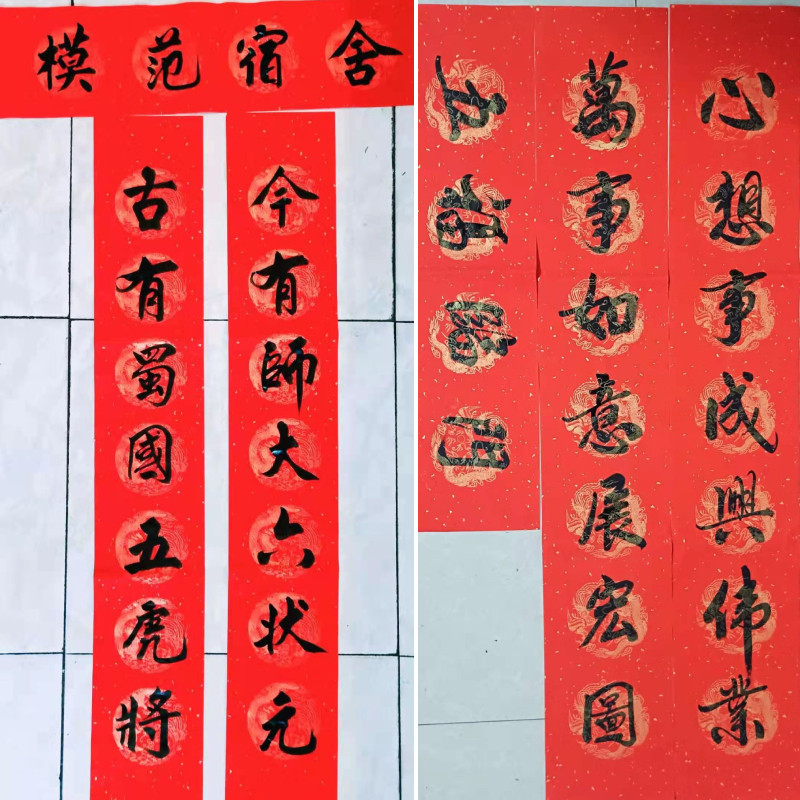 模范宿舍
古有蜀國五虎將
今有師大六状元
心想事成興伟業
萬事如意展宏圖
五福臨門